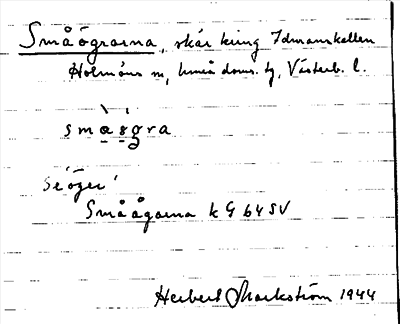 Småögrarna, skär kring Idmanskallen
Holmöns sn, Umeå doms. tg, Västerb. l.
smasgra
Småågarna k G 64 SV
Herbert Markström 1944